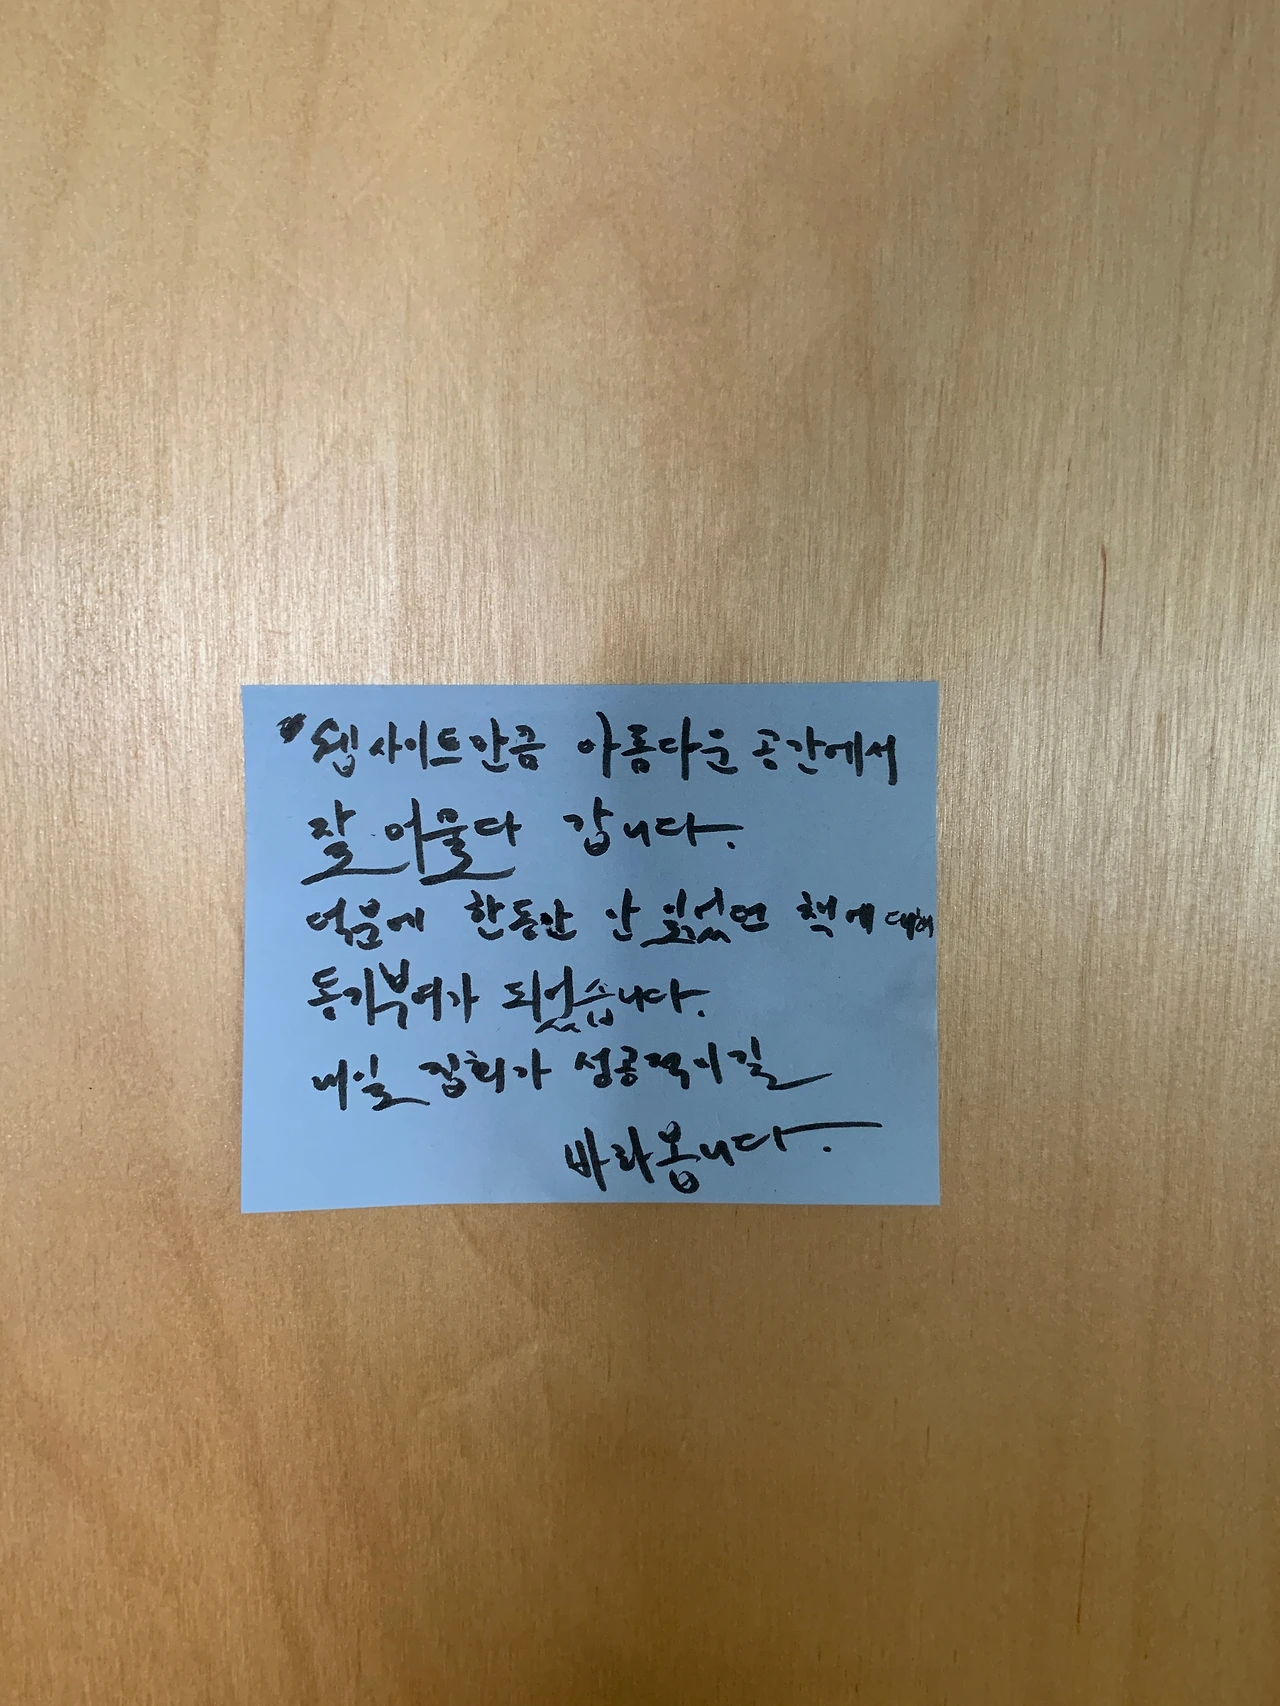 웹사이트만큼 아름다운 공간에서
잘 머물다 갑니다.
덕분에 한동안 안 읽었던 책에 대해
동기부여가 되었습니다.
내일 집회가 성공적이길
바라봅니다.